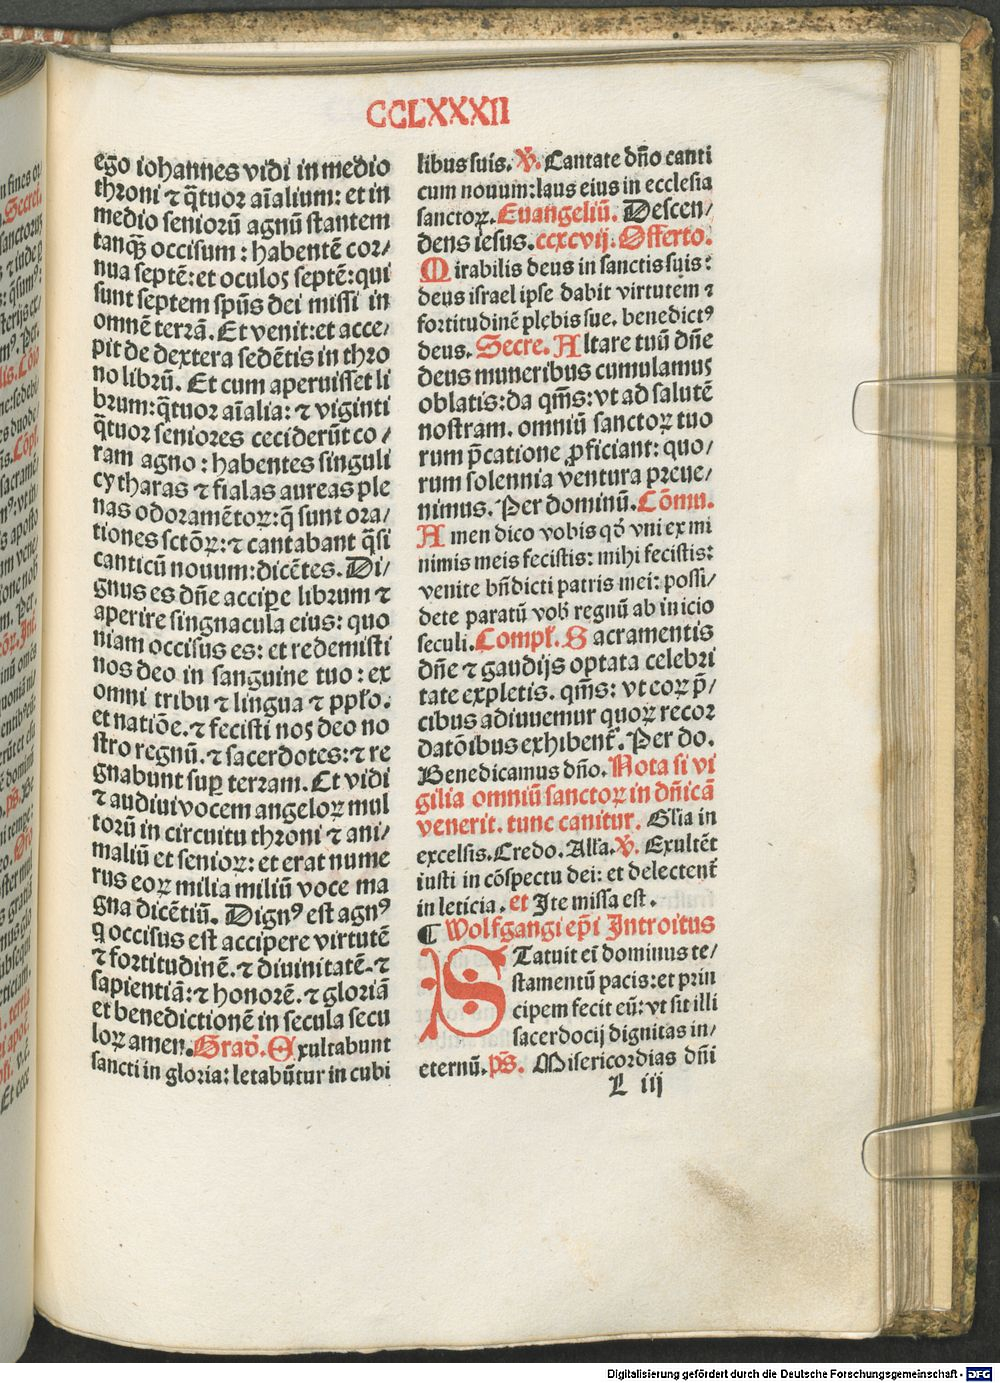 CCLXXXII
ego iohannes vidi in medio
throni ⁊ q̃tuor aĩalium: et in
medio seniorũ agnũ stantem
tanq̃ occisum: habentẽ cor/
nua septẽ: et oculos septẽ: qui
sunt septem spũs dei missi in
omnẽ terrã. Et venit: et acce/
pit de dextera sedẽtis in thro
no librũ. Et cum aperuisset li
brum: q̃tuor aĩalia: ⁊ viginti
q̃tuor seniores ceciderũt co/
ram agno: habentes singuli
cytharas ⁊ fialas aureas ple
nas odoramẽtoꝝ: q̃ sunt ora/
tiones sctõꝝ: ⁊ cantabant q̃si
canticũ nouum: dicẽtes. Di/
gnus es dñe accipe librum ⁊
aperire singnacula eius: quo
niam occisus es: et redemisti
nos deo in sanguine tuo: ex
omni tribu ⁊ lingua ⁊ pplo.
et natiõe. ⁊ fecisti nos deo no
stro regnũ. ⁊ sacerdotes: ⁊ re
gnabunt suꝑ terram. Et vidi
⁊ audiui vocem angeloꝝ mul
torũ in circuitu throni ⁊ ani/
maliũ et senioꝝ: et erat nume
rus eoꝝ milia miliũ voce ma
gna dicẽtiũ. Dignꝰ est agnꝰ
q̇ occisus est accipere virtutẽ
⁊ fortitudinẽ. ⁊ diuinitatẽ. ⁊
sapientiã: ⁊ honorẽ. ⁊ gloriã
et benedictionẽ in secula secu
loꝝ amen. Grad̃. Exultabunt
sancti in gloria: letabũtur in cubi
libus suis. ℣. Cantate dño canti
cum nouum: laus eius in ecclesia
sanctoꝝ. Euangeliũ. Descen/
dens iesus. ccxcvij. Offerto.
Mirabilis deus in sanctis suis:
deus israel ipse dabit virtutem ⁊
fortitudinẽ plebis sue. benedictꝰ
deus. Secre. Altare tuũ dñe
deus muneribus cumulamus
oblatis: da qm̃s: vt ad salutẽ
nostram. omniũ sanctoꝝ tuo
rum p̃catione ꝓficiant: quo/
rum solennia ventura preue/
nimus. Per dominũ. Cõmu.
Amen dico vobis qd̃ vni ex mi
nimis meis fecistis: mihi fecistis:
venite bñdicti patris mei: possi/
dete paratũ vob̃ regnũ ab inicio
seculi. Compl̃. Sacramentis
dñe ⁊ gaudijs optata celebri
tate expletis. qm̃s: vt eoꝝ p̃/
cibus adiuuemur quoꝝ recor
datõibus exhibent᷑. Per do.
Benedicamus dño. Nota si vi
gilia omniũ sanctoꝝ in dñicã
venerit. tunc canitur. Glia in
excelsis. Credo. All̃a. ℣. Exultẽt
iusti in cõspectu dei: et delectent᷑
in leticia. et Ite missa est.
¶ Wolfgangi ep̃i Introitus
STatuit ei dominus te/
stamentũ pacis: et prin
cipem fecit eũ: vt sit illi
sacerdocij dignitas in/
eternũ. ps̃. Misericordias dñi
L iij
Digitalisierung gefördert durch die Deutsche Forschungsgemeinschaft - DFG